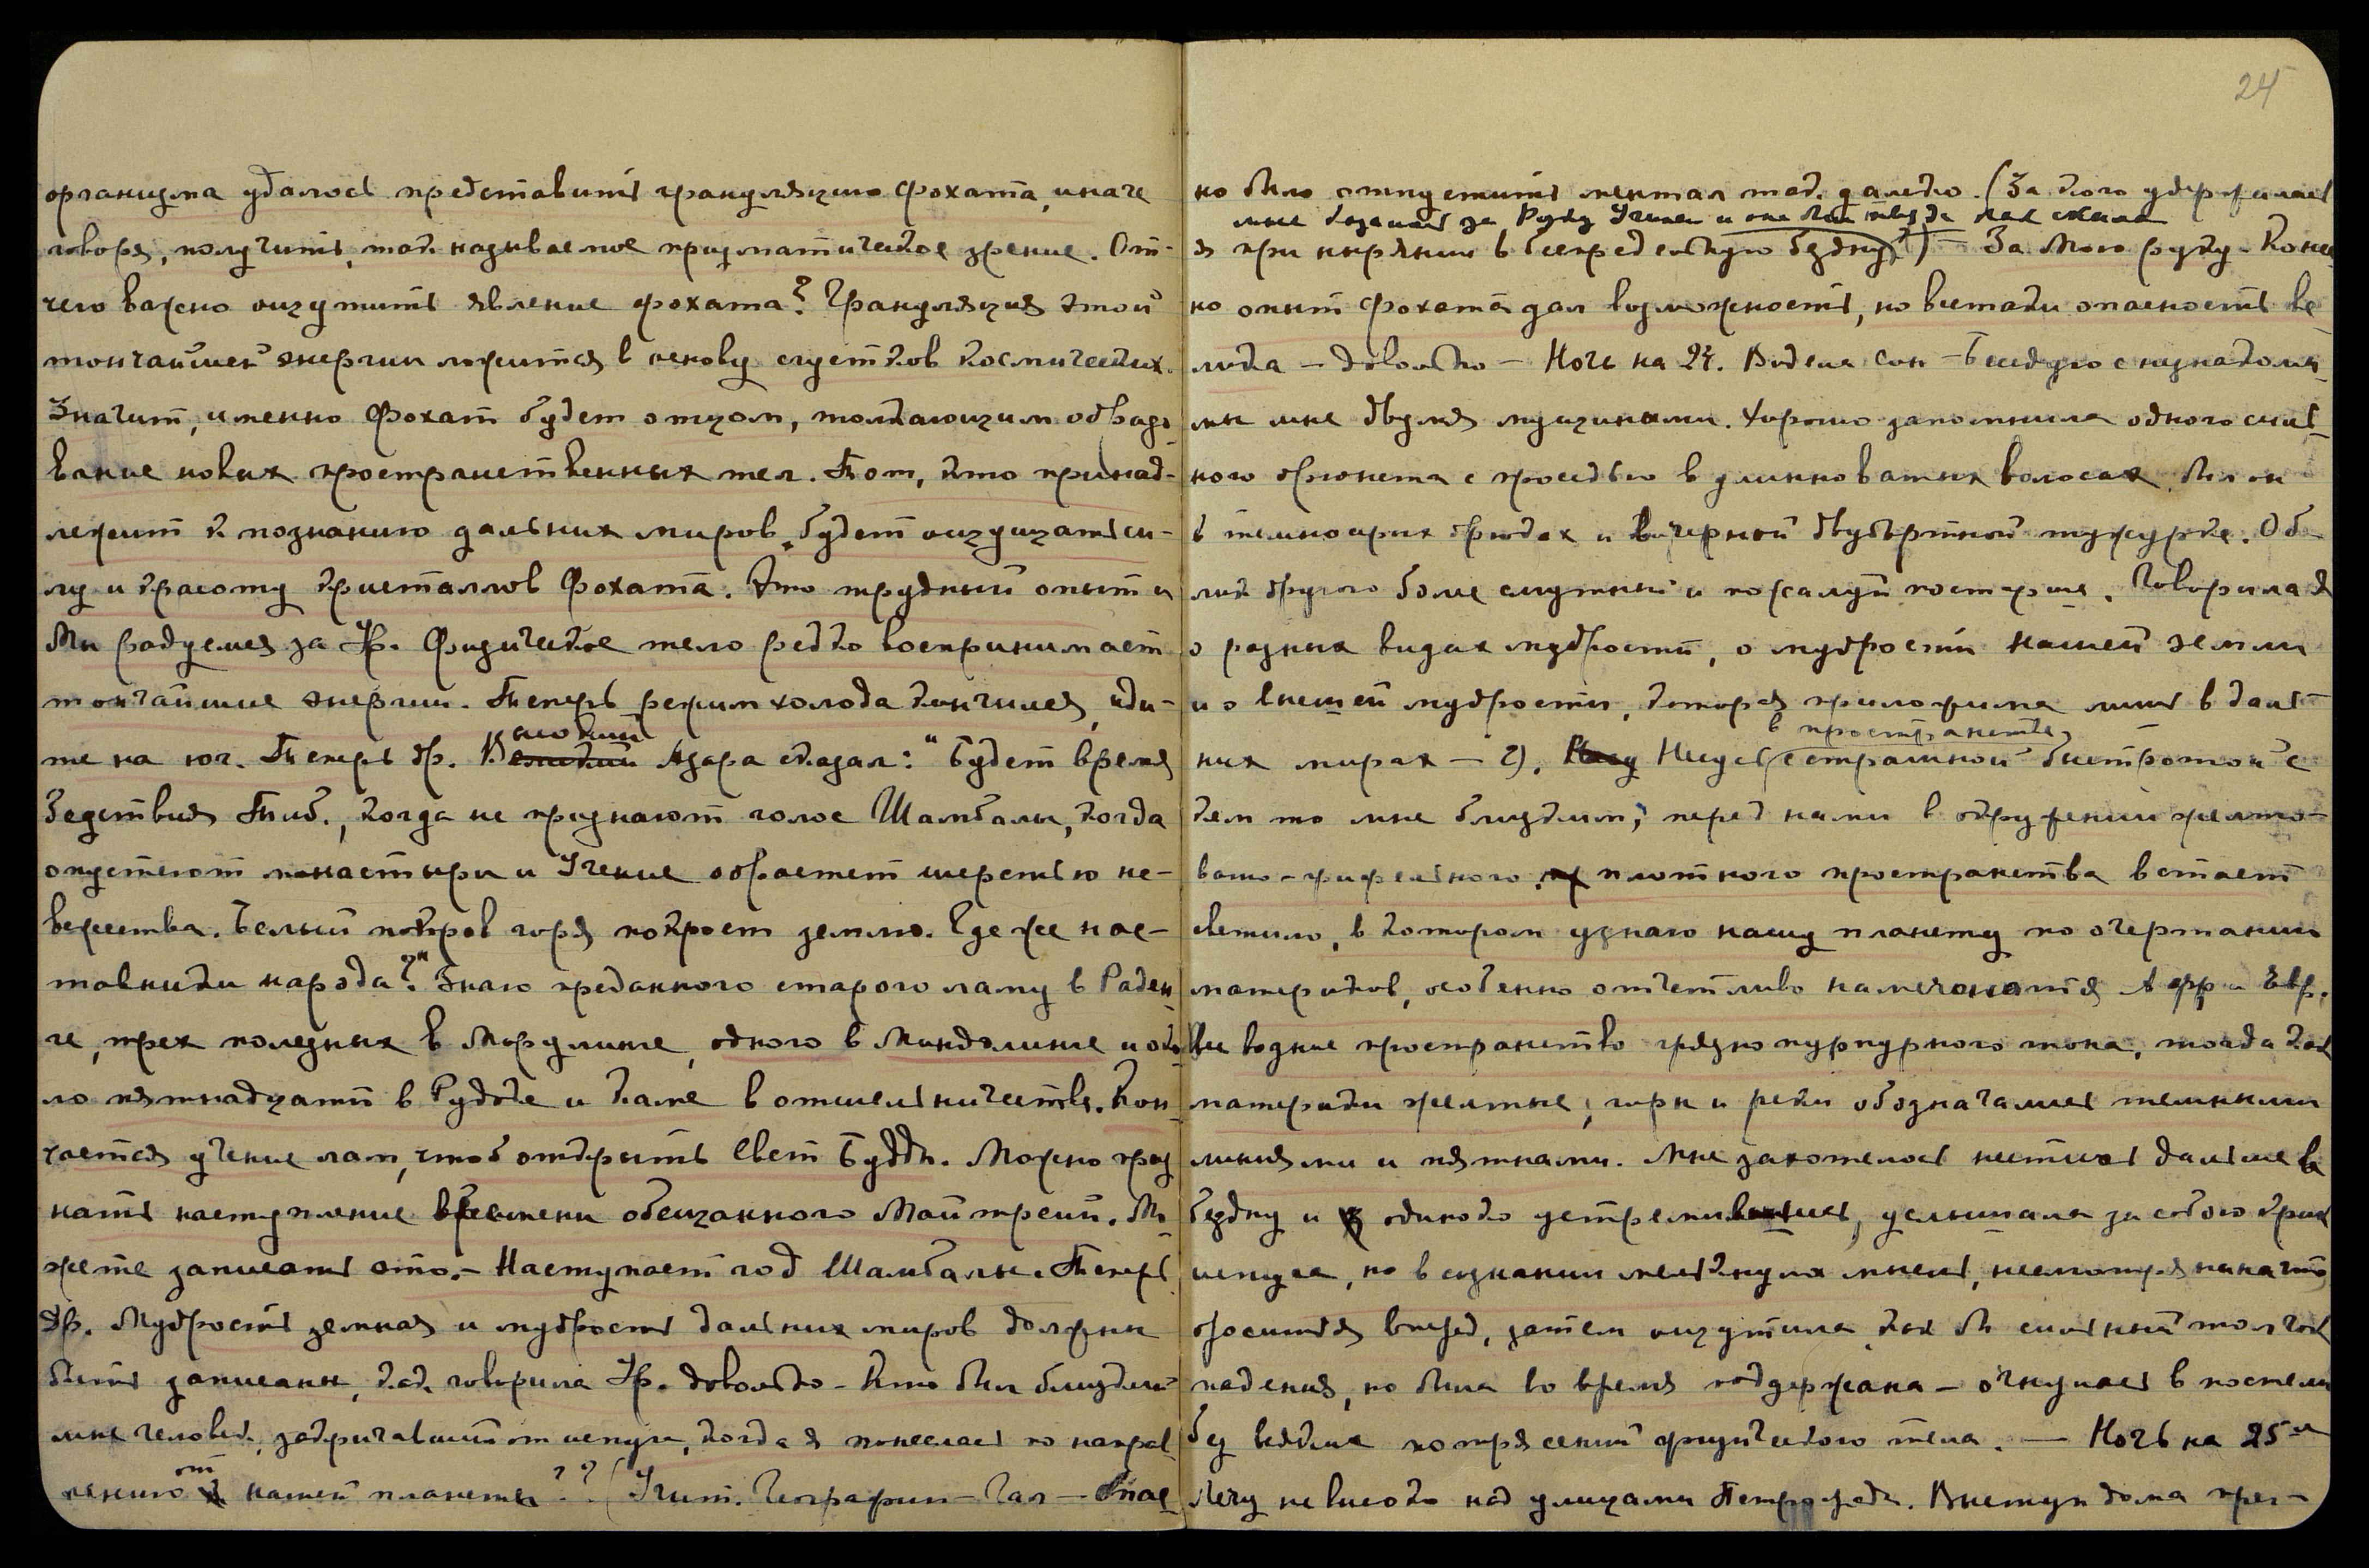 организма удалось представить грануляцию Фохата, иначе
говоря, получить, так называемое призматическое зрение. От-
чего важно ощутить явление фохата? Грануляция этой
тончайшей энергии ложится в основу сгустков космических.
Значит, именно Фохат будет отцом, толкающим образо-
вание новых пространственных тел. Тот, кто принад-
лежит к познанию дальних миров, будет ощущать си-
лу и красоту кристаллов Фохата. Это трудный опыт и
Мы радуемся за Ур. Физическое тело редко воспринимает
тончайшие энергии. Теперь режим холода кончился, иди-
те на юг. Теперь др. Азара сказал: "Будет время
бедствия Тиб., когда не признают голос Шамбалы, когда
опустеют монастыри и Учение обрастет шерстью не-
вежества. Белый покров горя покроет землю. Где же нас-
тавники народа?" Знаю преданного старого ламу в Раден-
ге, трех полезных в Морулинге, одного в Миндолинге и око-
ло пятнадцати в Рудоке и Каме в отшельничестве. Кон-
чается учение лам, чтоб открыть Свет Будды. Можно приз
нать наступление времени обещанного Майтрейи. Мо-
жете записать это. – Наступает год Шамбалы. Теперь
др. Мудрость земная и мудрость дальних миров должны
быть записаны, как говорила Ур. довольно – Кто был близкий
мне человек, закричавший от испуга, когда я понеслась по направ
лению от нашей планеты?? (Учит. Географии – Гал – Опас
24
но было отпустить ментал так далеко. (За кого удержалась
мне казалось за Руку Учителя и она была тверда как скала
я при нырянии в беспредельную бездну?) – За Мою руку. Конеч
но опыт Фохата дал возможность, но всетаки опасность ве-
лика – довольно – Ночь на 24. Видела сон – Беседую с незнакомы-
ми мне двумя мущинами. Хорошо запомнила одного силь-
ного брюнета с проседью в длинноватых волосах. Был он
в темносерых брюках и в черной двубортной тужурке. Об-
лик другого более смутный и пожалуй постарше. Говорила я
о разных видах мудрости, о мудрости нашей земли
и о высшей мудрости, которая приложима лишь в даль-
них мирах – 2). Несусь в пространстве с страшной быстротой с
кем то мне близким; перед нами в окружении желто-
вато- плотного пространства встает
светило, в котором узнаю нашу планету по очертанию
материков, особенно отчетливо намечаются Афр. и Евр.
Все водные пространство грязно пурпурного тона, тогда как
материки желтые; горы и реки обозначались темными
линиями и пятнами. Мне захотелось нестись дальше в
бездну и одиноко устремившись, услышала за собою крик
испуга, но в сознании мелькнула мысль, несмотря ни на что
броситься вперед, затем ощутила как бы сильный толчок
падения, но была во время поддержана – очнулась в постели
без всяких потрясений физического тела. — Ночь на 25-ое
Лечу не высоко над улицами Петрограда. Выступ дома прег-